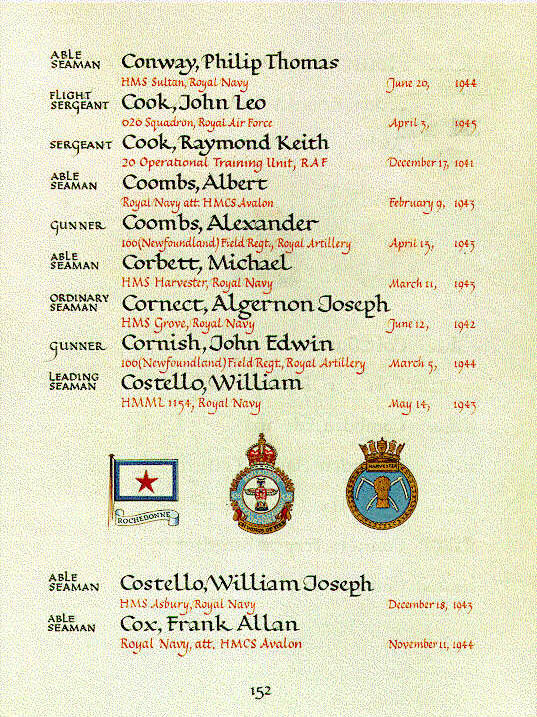 ABLE SEAMAN Conway, Philip Thomas
HMS Sultan, Royal Navy June 20, 1944
FLIGHT SERGEANT Cook, John Leo
026 Squadron, Royal Air Force April 3, 1945
SERGEANT Cook, Raymond Keith
20 Operational Training Unit, RAF December 17, 1941
ABLE SEAMAN Coombs, Albert
Royal Navy att. HMCS Avalon February 9, 1943
GUNNER Coombs, Alexander
166(Newfoundland) Field Regt., Royal Artillery April 15, 1943
ABLE SEAMAN Corbett, Michael
HMS Harvester, Royal Navy March 11, 1943
ORDINARY SEAMAN Cornect, Algernon Joseph
HMS Grove, Royal Navy June 12, 1942
GUNNER Cornish, John Edwin
166(Newfoundland) Field Regt., Royal Artillery March 5, 1944
LEADING SEAMAN Costello, William
HMML 1154, Royal Navy May 14, 1943
ROCHEBONNE
HARVESTER
ABLE SEAMAN Costello, William Joseph
HMS Asbury, Royal Navy December 18, 1943
ABLE SEAMAN Cox, Frank Allan
Royal Navy, att. HMCS Avalon November 11, 1944
152